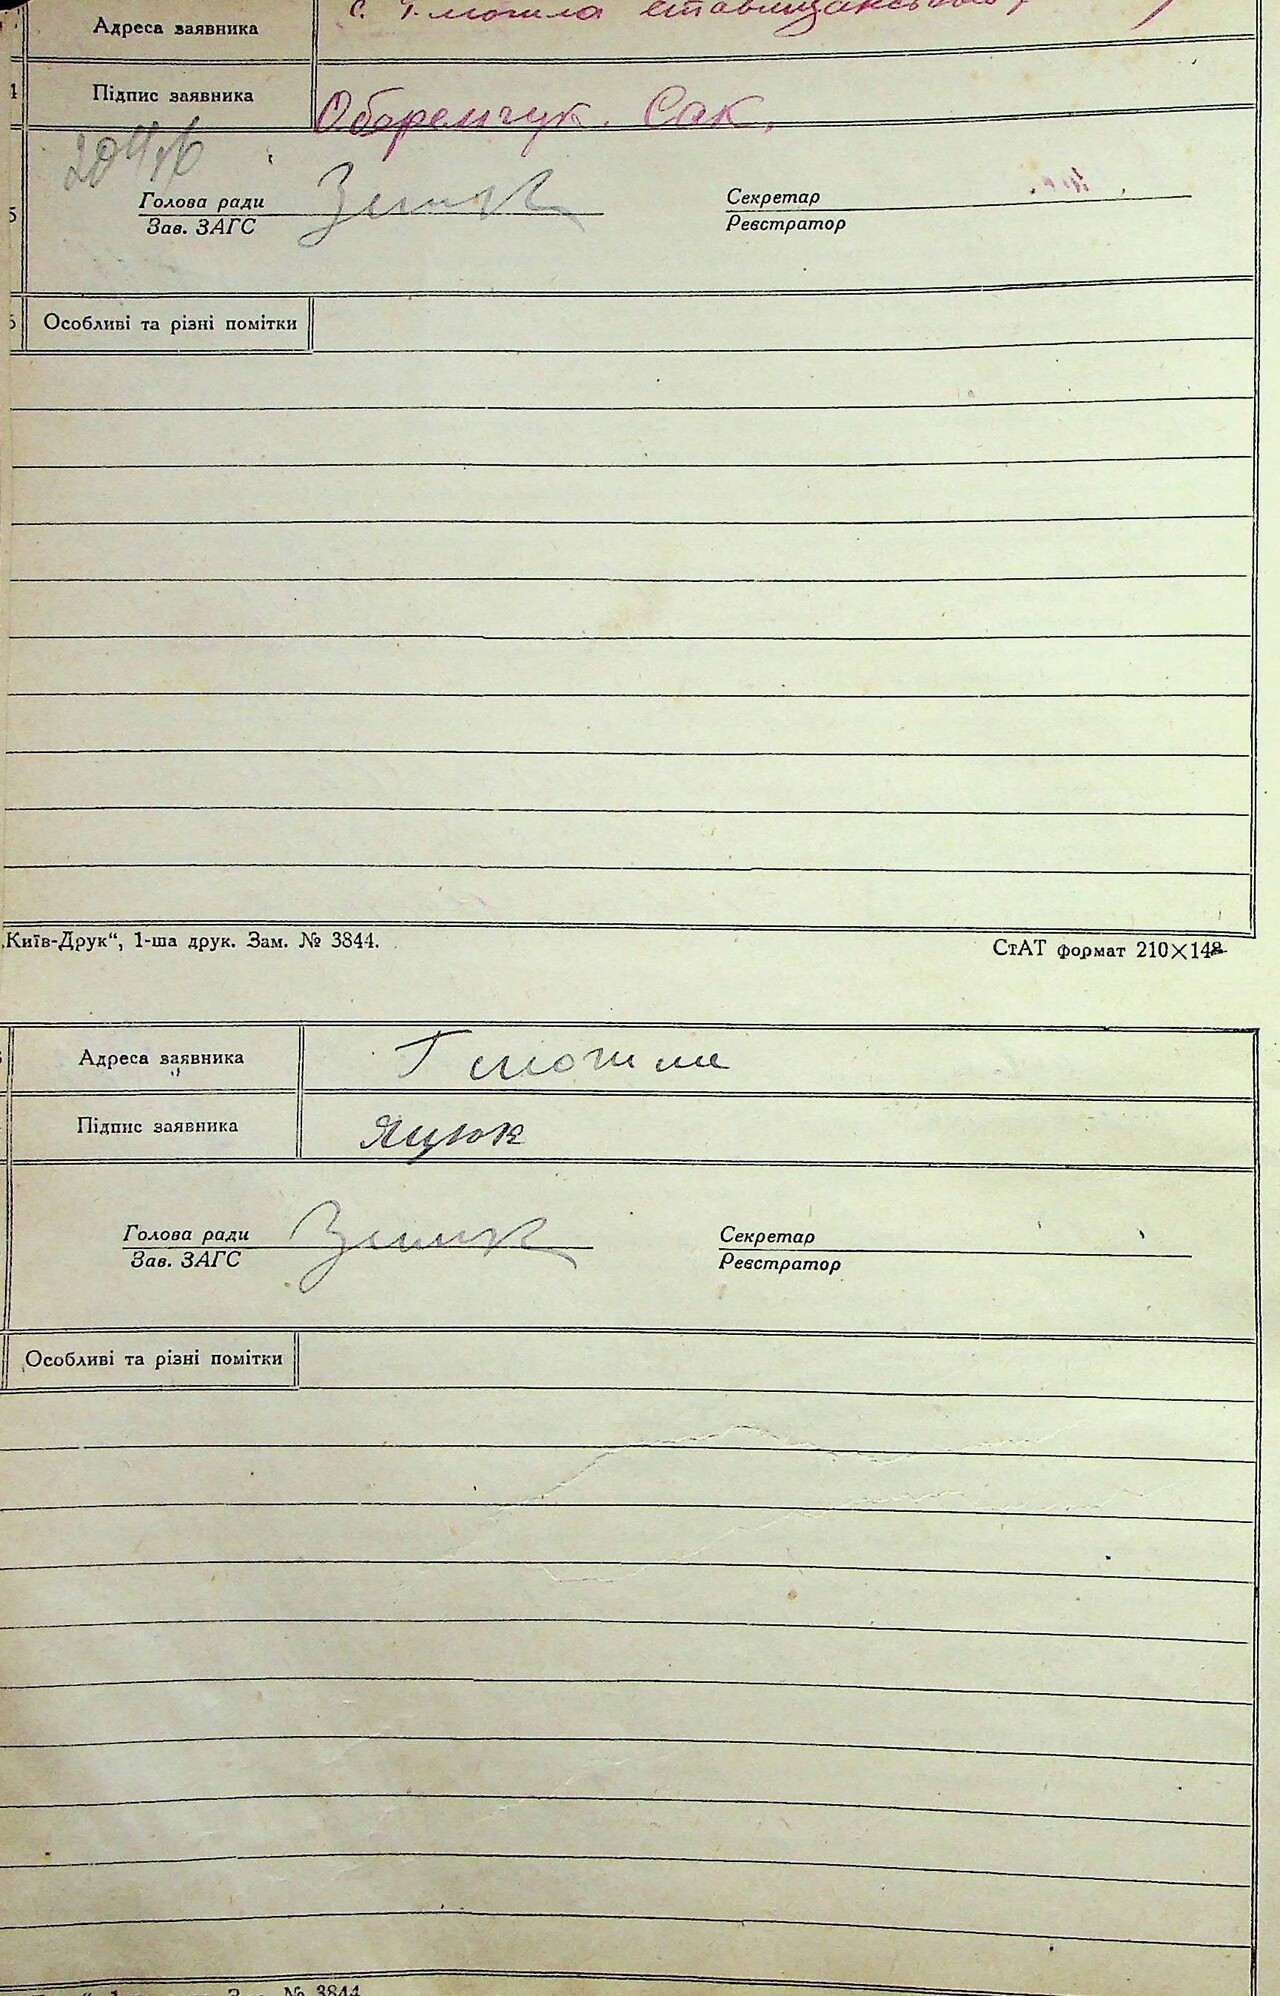 Адреса заявника с. Г. могила Ставищанського
Підпис заявника Оберемчук. Сак.
Голова ради
Зав. ЗАГС
Секретар
Реєстратор
Особливі та різні помітки
„Київ-Друк“, 1-ша друк. Зам. № 3844.
СтАТ формат 210×148
Адреса заявника Г могила
Підпис заявника Яцюк
Голова ради
Зав. ЗАГС
Секретар
Реєстратор
Особливі та різні помітки
№ 3844